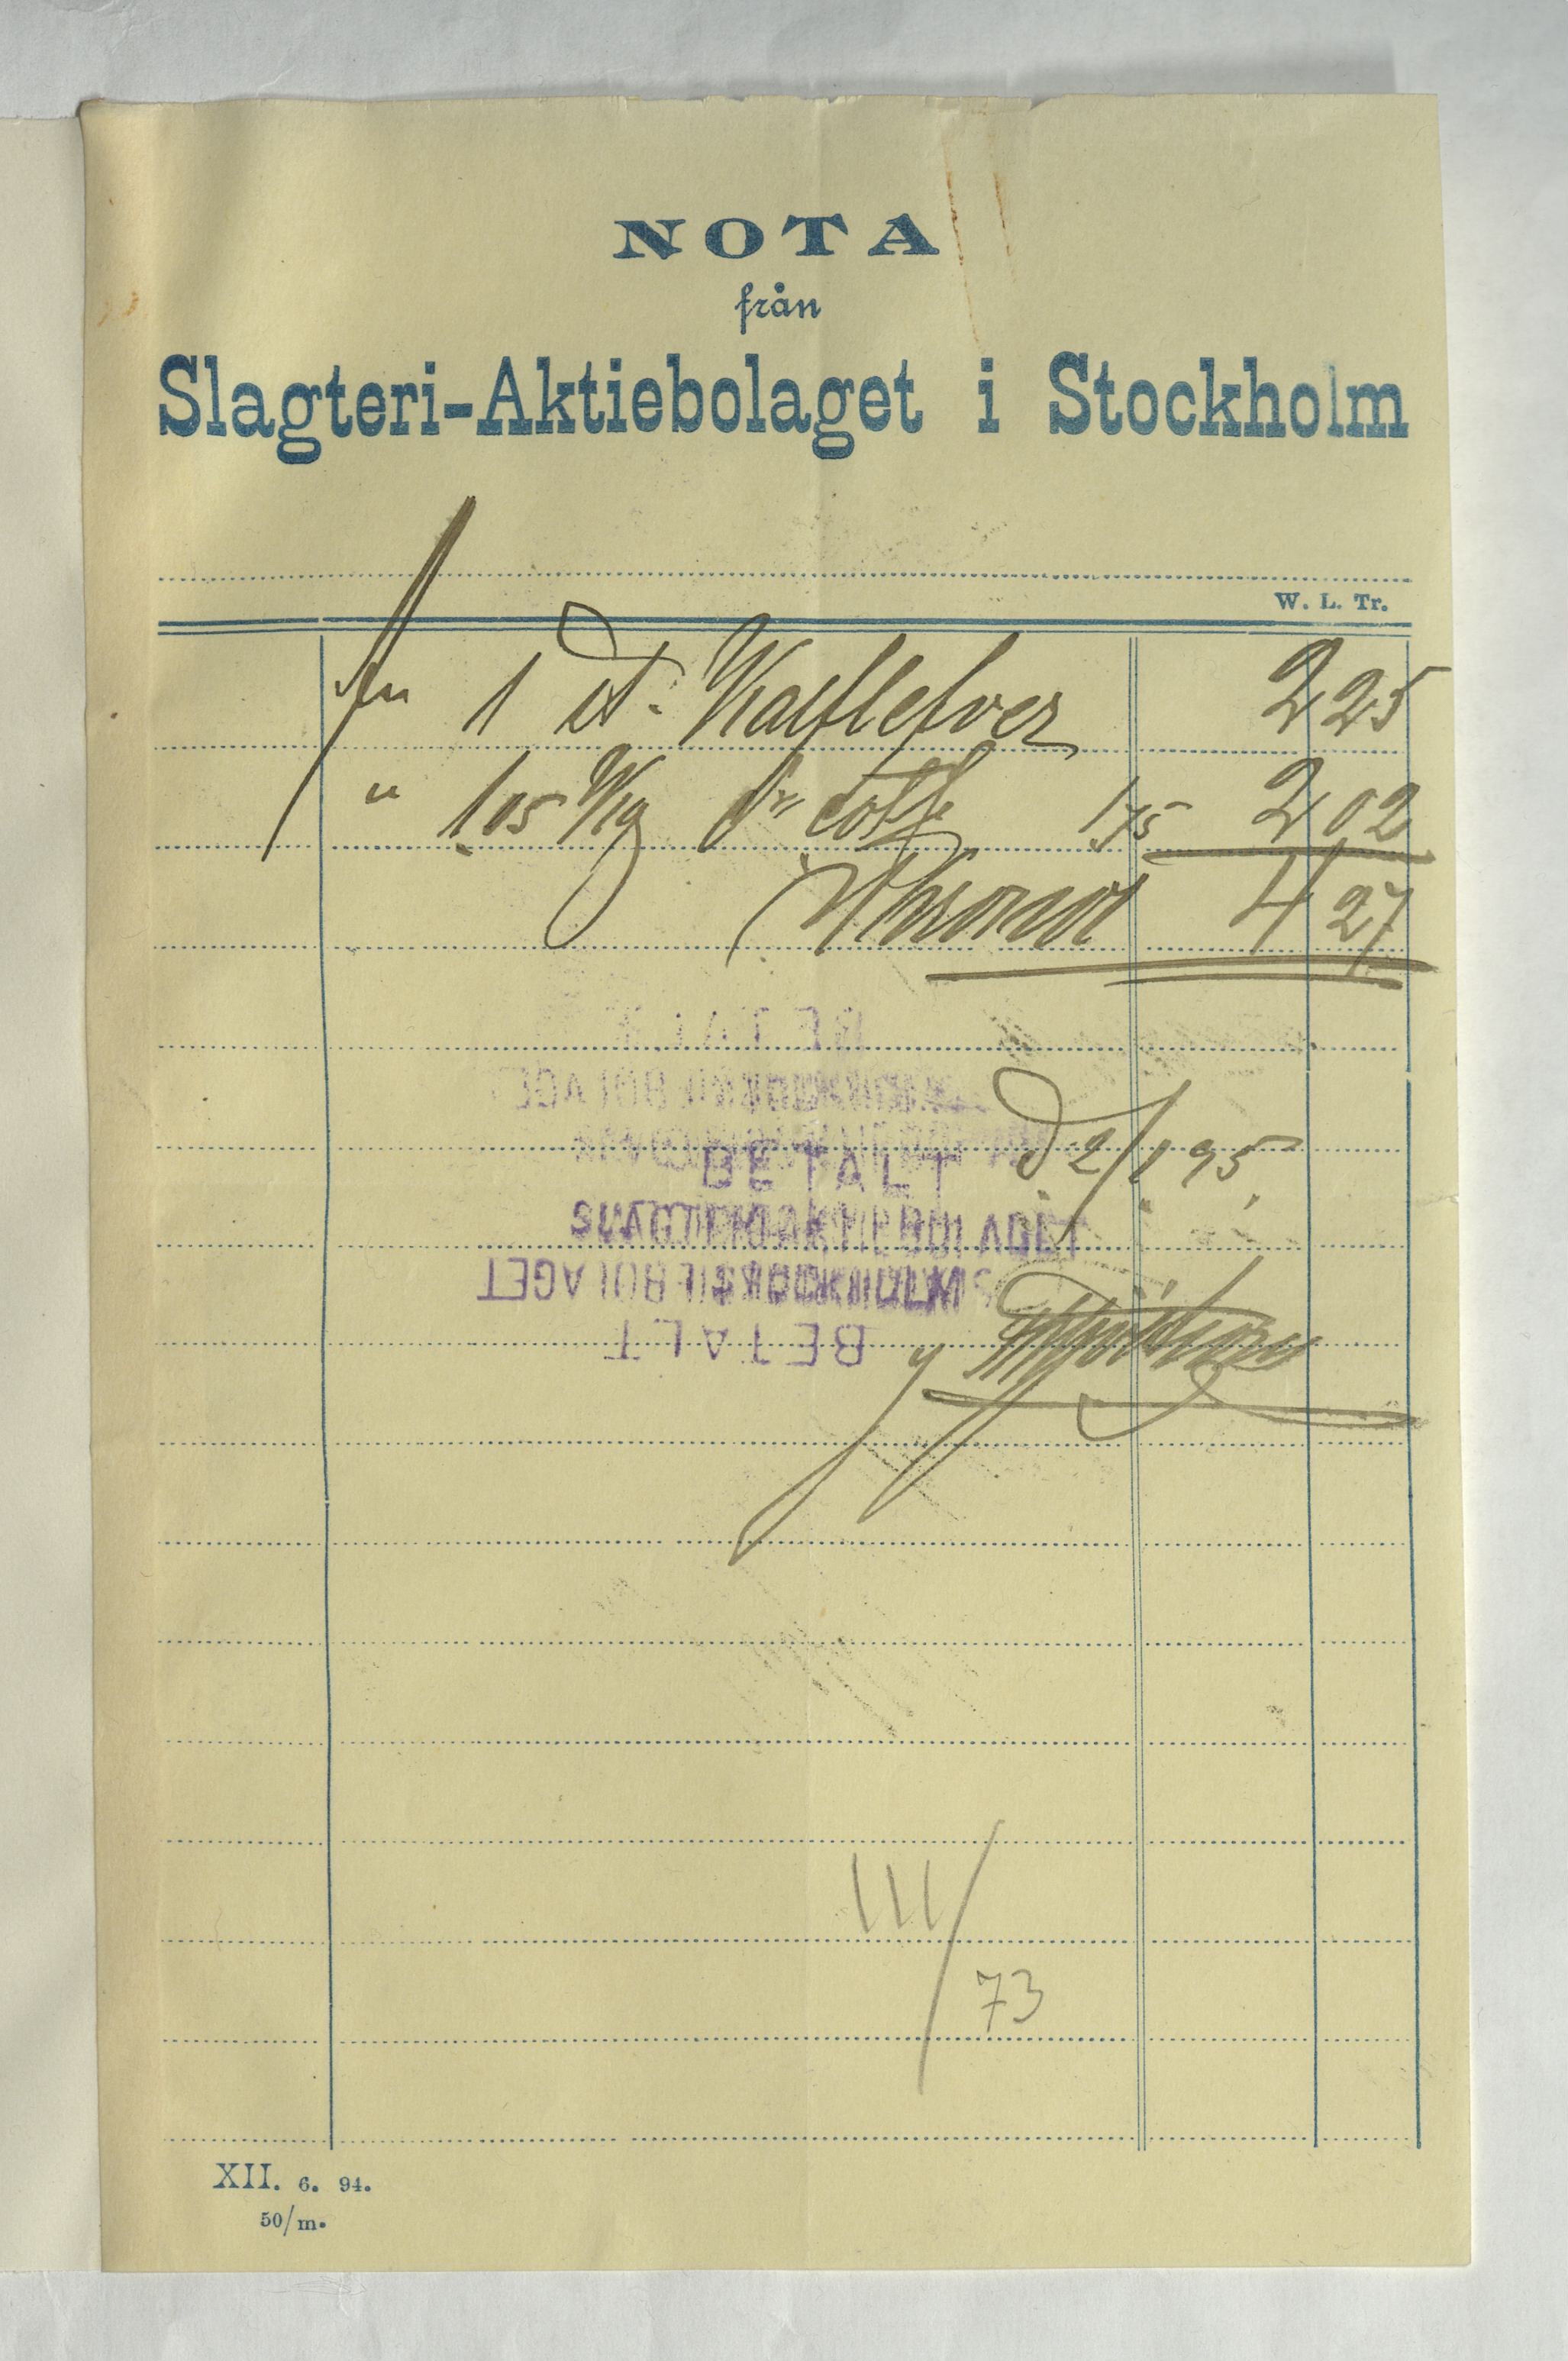 NOTA
från
Slagteri-Aktiebolaget i Stockholm
W. L. Tr.
1 st. Kalflefver 2 25
" 1 05 K/g 1 75 2 02
Kronor 4 27
BETALT
BETALT
SLAGTERI-AKTIEBOLAGET
AKTIEBOLAGET
BETALT
d 2/1 95
III/73
XII. 6. 94.
50/m.